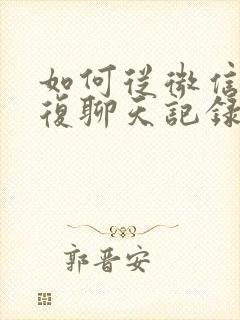 如何從微信
復聊天記錄
郭晋安